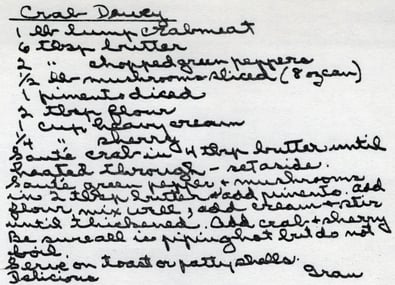 Crab Dewey
1 lb lump crabmeat
6 tbsp butter
2 " chopped green peppers
1/2 lb mushrooms sliced (8 oz can)
1 pimento diced
2 tbsp flour
1 cup heavy cream
1/4 " sherry
Sauté crab in 4 tbsp butter until
heated through - set aside.
Sauté green pepper + mushrooms
in 2 tbsp butter + add pimento. Add
flour, mix well, add cream + stir
until thickened. Add crab + sherry
Be sure all is piping hot but do not
boil.
Serve on toast or patty shells.
Delicious Gram